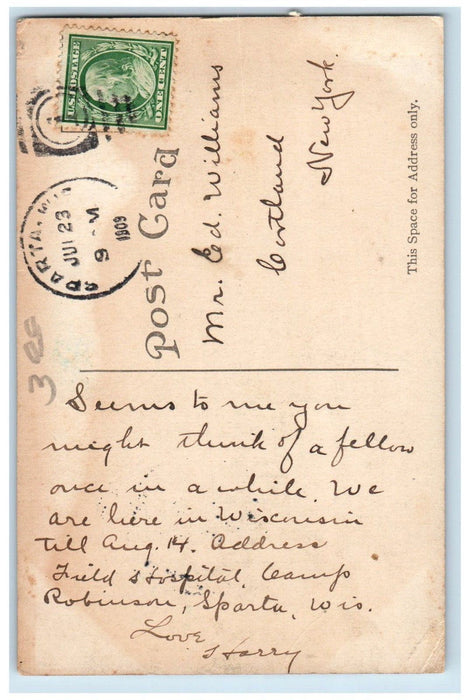 U.S. POSTAGE
ONE CENT
SPARTA, WIS
JUL 23
9 AM
1909
Post Card
Mr. Ed. Williams
Cortland
New York.
This Space for Address only.
3 00
Seems to me you
might think of a fellow
once in a while. We
are here in Wisconsin
till Aug. 14. Address
Field Hospital, Camp
Robinson, Sparta, Wis.
Love
Harry